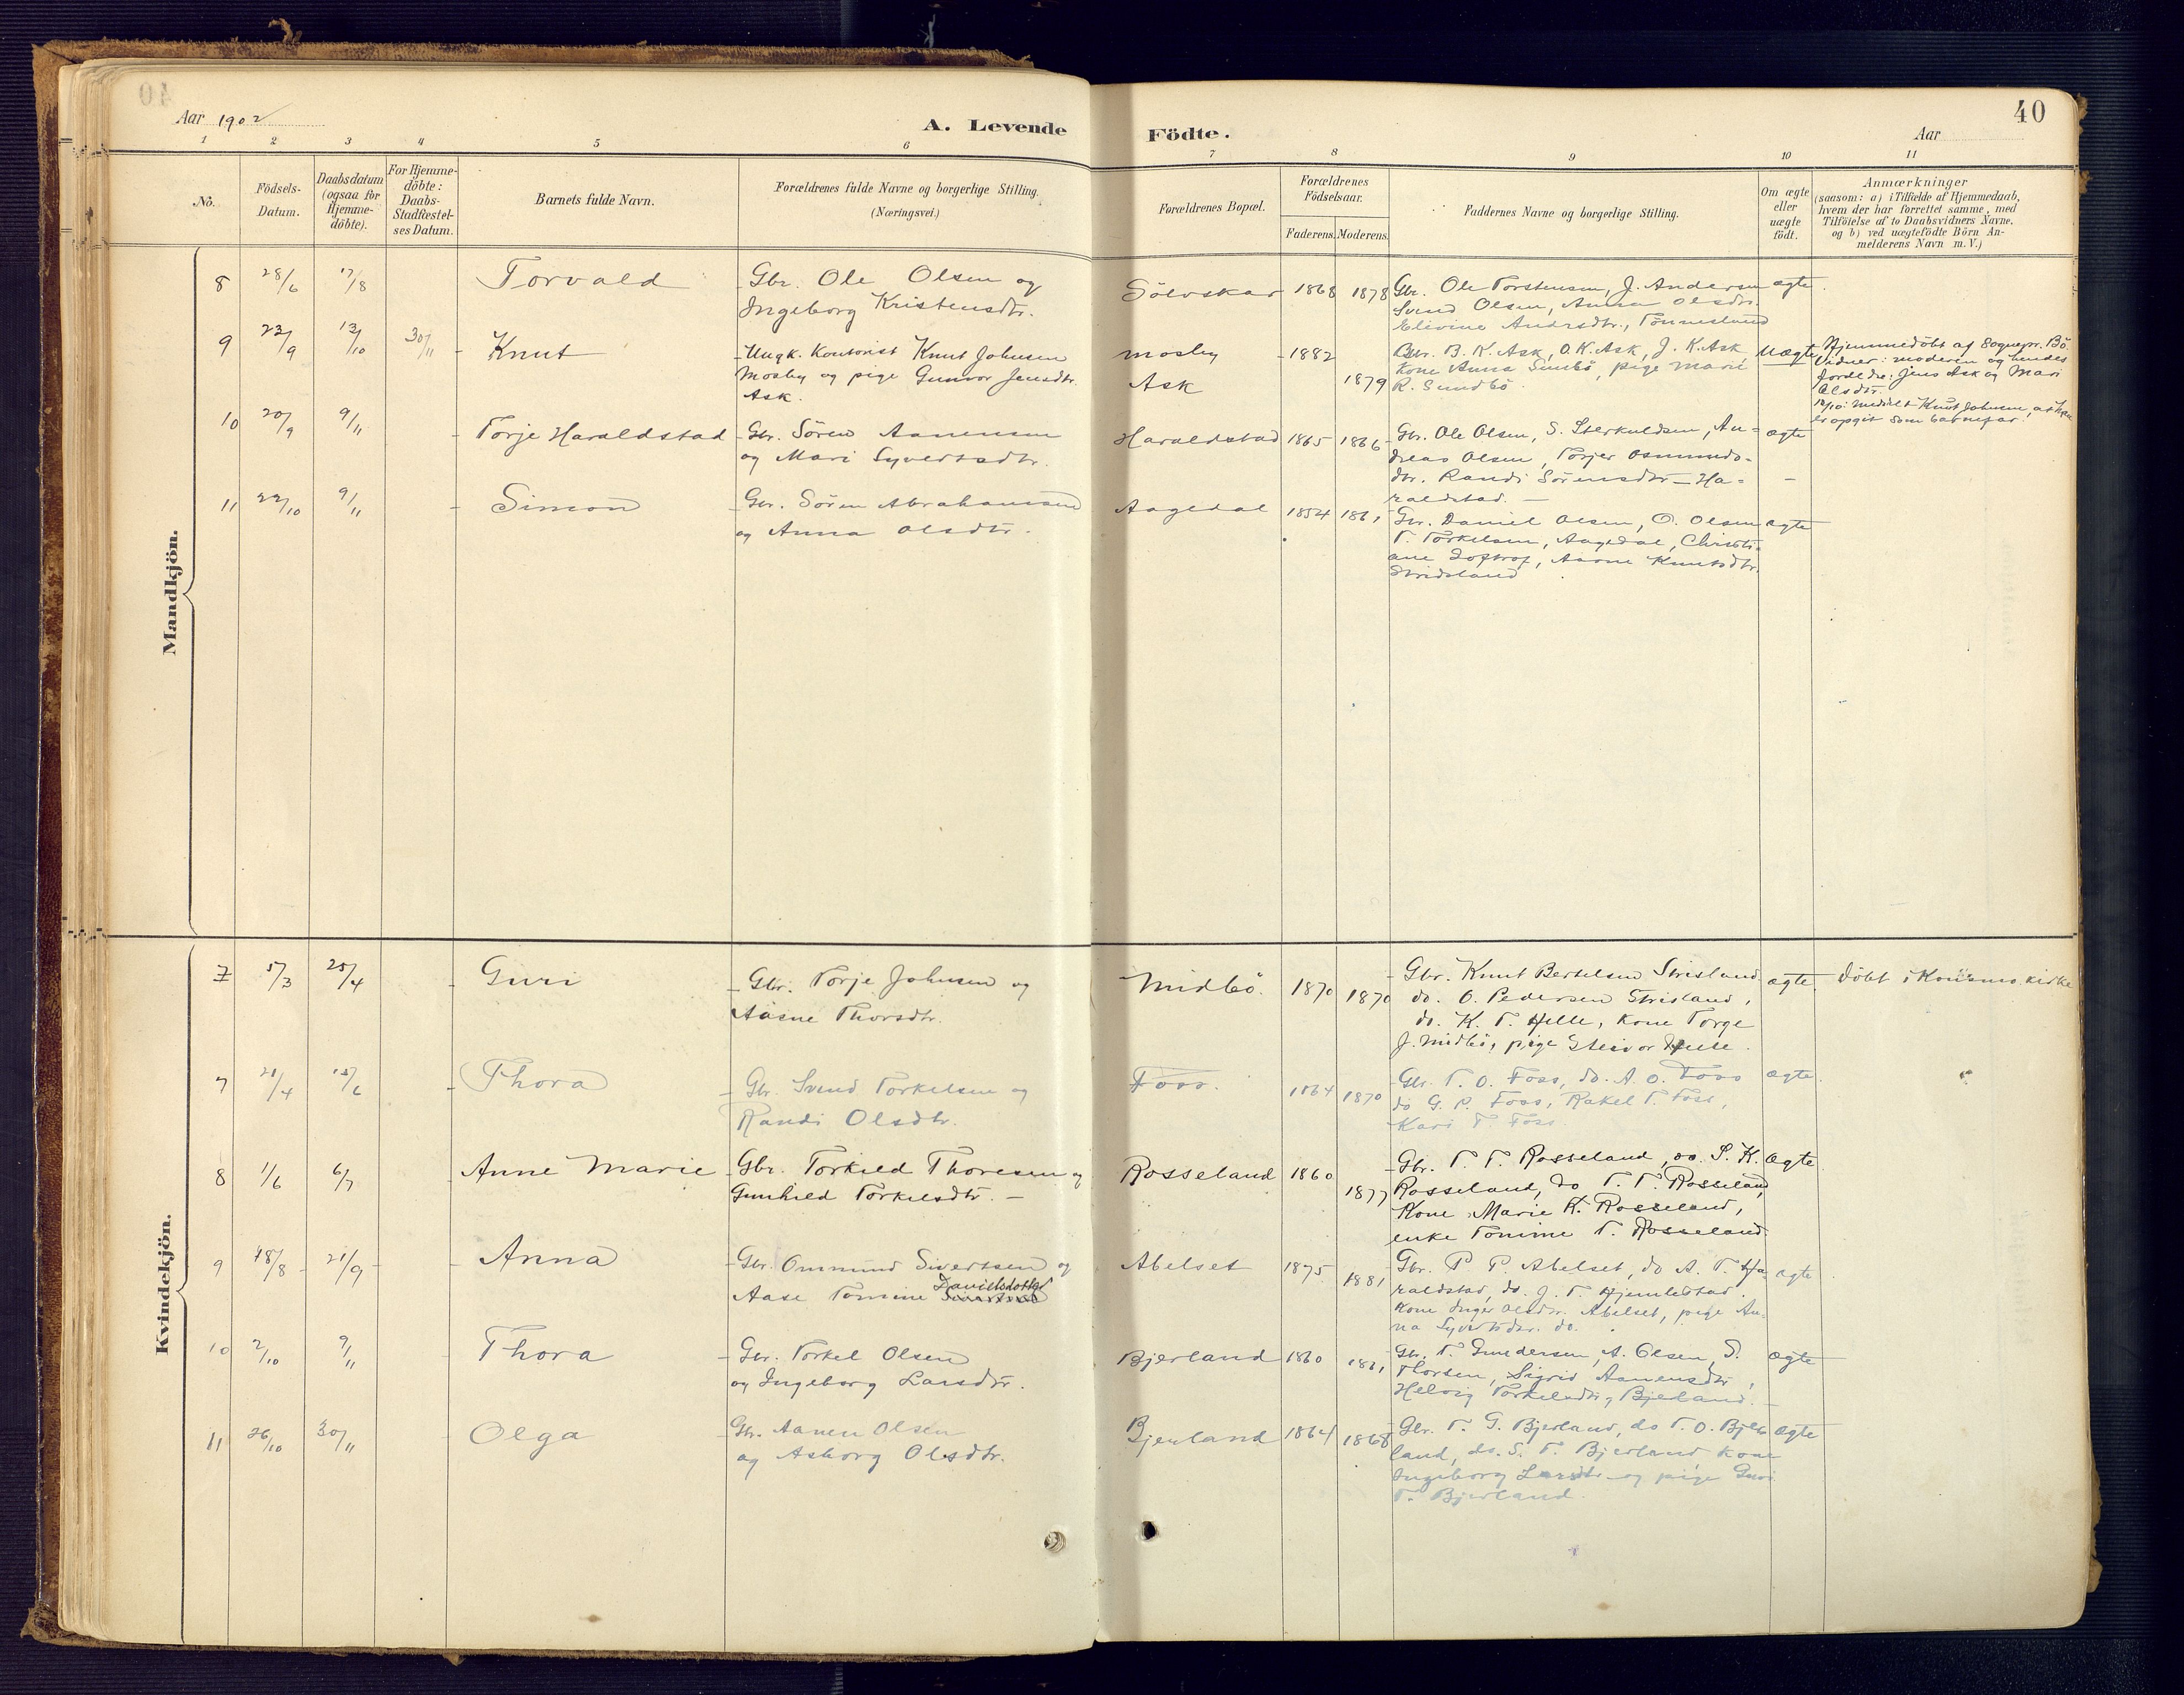 40
Aar 1902
A. Levende Födte.
Aar
1 2 3 4 5 6 7 8 9 10 11
No.
Födsels-
Datum.
Daabsdatum
(ogsaa for
Hjemme-
döbte).
For Hjemme-
döbte:
Daabs-
Stadfæstel-
ses Datum.
Barnets fulde Navn.
Forældrenes fulde Navne og borgerlige Stilling.
(Næringsvei.)
Forældrenes Bopæl.
Forældrenes
Födselsaar.
Faderens. Moderens.
Faddernes Navne og borgerlige Stilling.
Om ægte
eller
uægte
födt.
Anmærkninger
(saasom: a) i Tilfælde af Hjemmedaab,
hvem der har forrettet samme, med
Tilföielse af to Daabsvidners Navne.
og b) ved uægtefödte Börn An-
melderens Navn m. V.)
Mandkjön.
8 28/6 17/8 Torvald
Gbr. Ole Olsen og
Ingeborg Kristensdtr.
Sölvskar 1868 1878
Gbr. Ole Torstensen, J. Andersen
Svend Olsen, Anna Olsdtr.
Elivine Andrsdtr., Tönnesland
ægte.
9 23/9 13/10 30/11 Knut
Ungk. Kontorist Knut Johnsen
Mosby og pige Gunvor Jensdtr.
Ask.
Mosby 1882
Ask 1879
Gbr. B. K. Ask, O. K. Ask, J. K. Ask,
Kone Anna Sundbö, pige Marie
R. Sundbö.
Uægte
Hjemmedöbt af Sognepr. Bö.
Vidner: moderen og hendes
foreldre: Jens Ask og Mari
Olsdtr.
meddelt Knut Johnsen, at han
er opgit som barnefar.
10 20/9 9/11 Torje Haraldstad
Gbr. Sören Aanensen
og Mari Syvertsdtr.
Haraldstad 1865 1866
Gbr. Ole Olsen, S. Sterkuldsen, An-
dreas Olsen, Torjer Osmunds-
dtr. Randi Sörensdtr - Ha-
raldstad. -
ægte
-
11 22/10 9/11 Simon
Gbr. Sören Abrahamsen
og Anna Olsdtr.
Aagedal 1854 1861
Gbr. Daniel Olsen, O. Olsen
T. Torkelsen, Aagedal, Christi-
ane, Aasne Knutsdtr.
Stridsland
ægte
Kvindekjön.
7 5/3 25/4 Guri
Gbr. Torje Johnsen og
Aasne Thorsdtr.
Midbö. 1870 1870
Gbr. Knut Bertelsen Strisland
do. O. Pedersen Strisland,
do. K. T. Helle, Kone Torge
J. Midbö, pige Steivor Helle.
ægte.
Döbt i Konsmo kirke
7 21/4 15/6 Thora
Gbr. Svend Torkelsen og
Randi Olsdtr.
Foss. 1864 1870
Gbr. T. O. Foss, do. A. O. Foss
do G. P. Foss, Rakel T. Foss,
Kari T. Foss
ægte.
8 1/6 6/7 Anne Marie
Gbr. Torkild Thoresen og
Gunhild Torkelsdtr. -
Rosseland 1860 1877
Gbr. T. T. Rosseland, do. S. K.
Rosseland, do T. T. Rosseland,
Kone Marie K. Rosseland,
enke Tomine T. Rosseland.
ægte.
9 18/8 21/9 Anna
Gbr. Ommund Sivertsen og
Aase Tomine Danielsdotter
Abelset 1875 1881
Gbr. P. P. Abelset, do A. T. Ha-
raldstad, do. J. T. Hjemlestad.
Kone Inger Olsdtr. Abelset, pige An-
na Syvertsdtr. do.
ægte.
10 2/10 9/11 Thora
Gbr. Torkel Olsen
og Ingeborg Larsdtr.
Bjerland 1860 1861
Gbr. T. Gundersen, A. Olsen, S.
Thorsen, Sigrid Aanensdtr,
Helvig Torkelsdtr, Bjerland. -
ægte
11 26/10 30/11 Olga
Gbr. Aanen Olsen
og Asborg Olsdtr.
Bjerland 1864 1868
Gbr. T. G. Bjerland, do T. O. Bjer-
land, do. S. T. Bjerland Kone
Ingeborg Larsdtr og pige Guri
T. Bjerland.
ægte